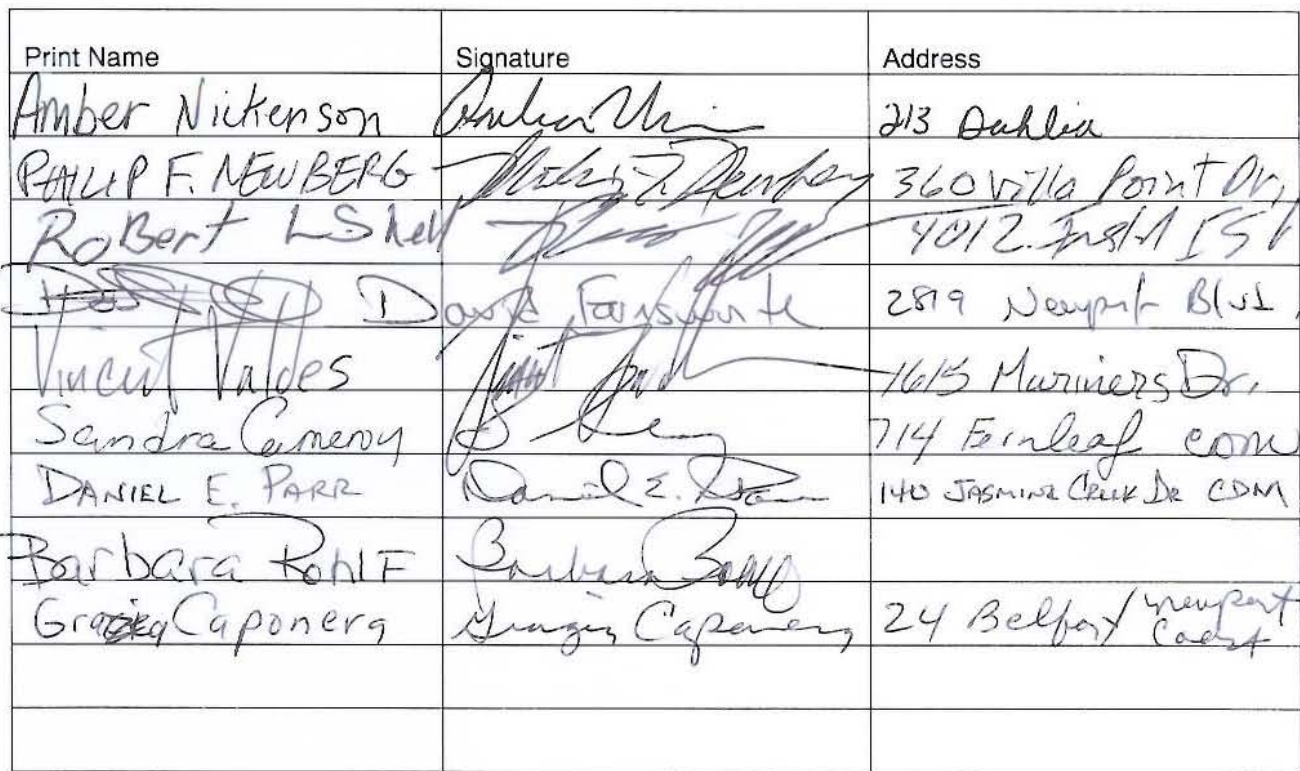 Print Name Signature Address
Amber Nickerson 213 Dahlia
PHILIP F. NEWBERG Philip F. Newberg 360 Villa Point Dr,
Robert L Shell 4012
David 2819 Newport Blvd,
Vincent Valdes 1615 Mariners Dr,
Sandra Cameron 714 Fernleaf CDM
DANIEL E. PARR Daniel E. Parr 140 JASMINE CREEK DR CDM
Barbara Rohlf Barbara Rohlf
Grazia Caponera Grazia Caponera 24 Belfort / Newport
Coast